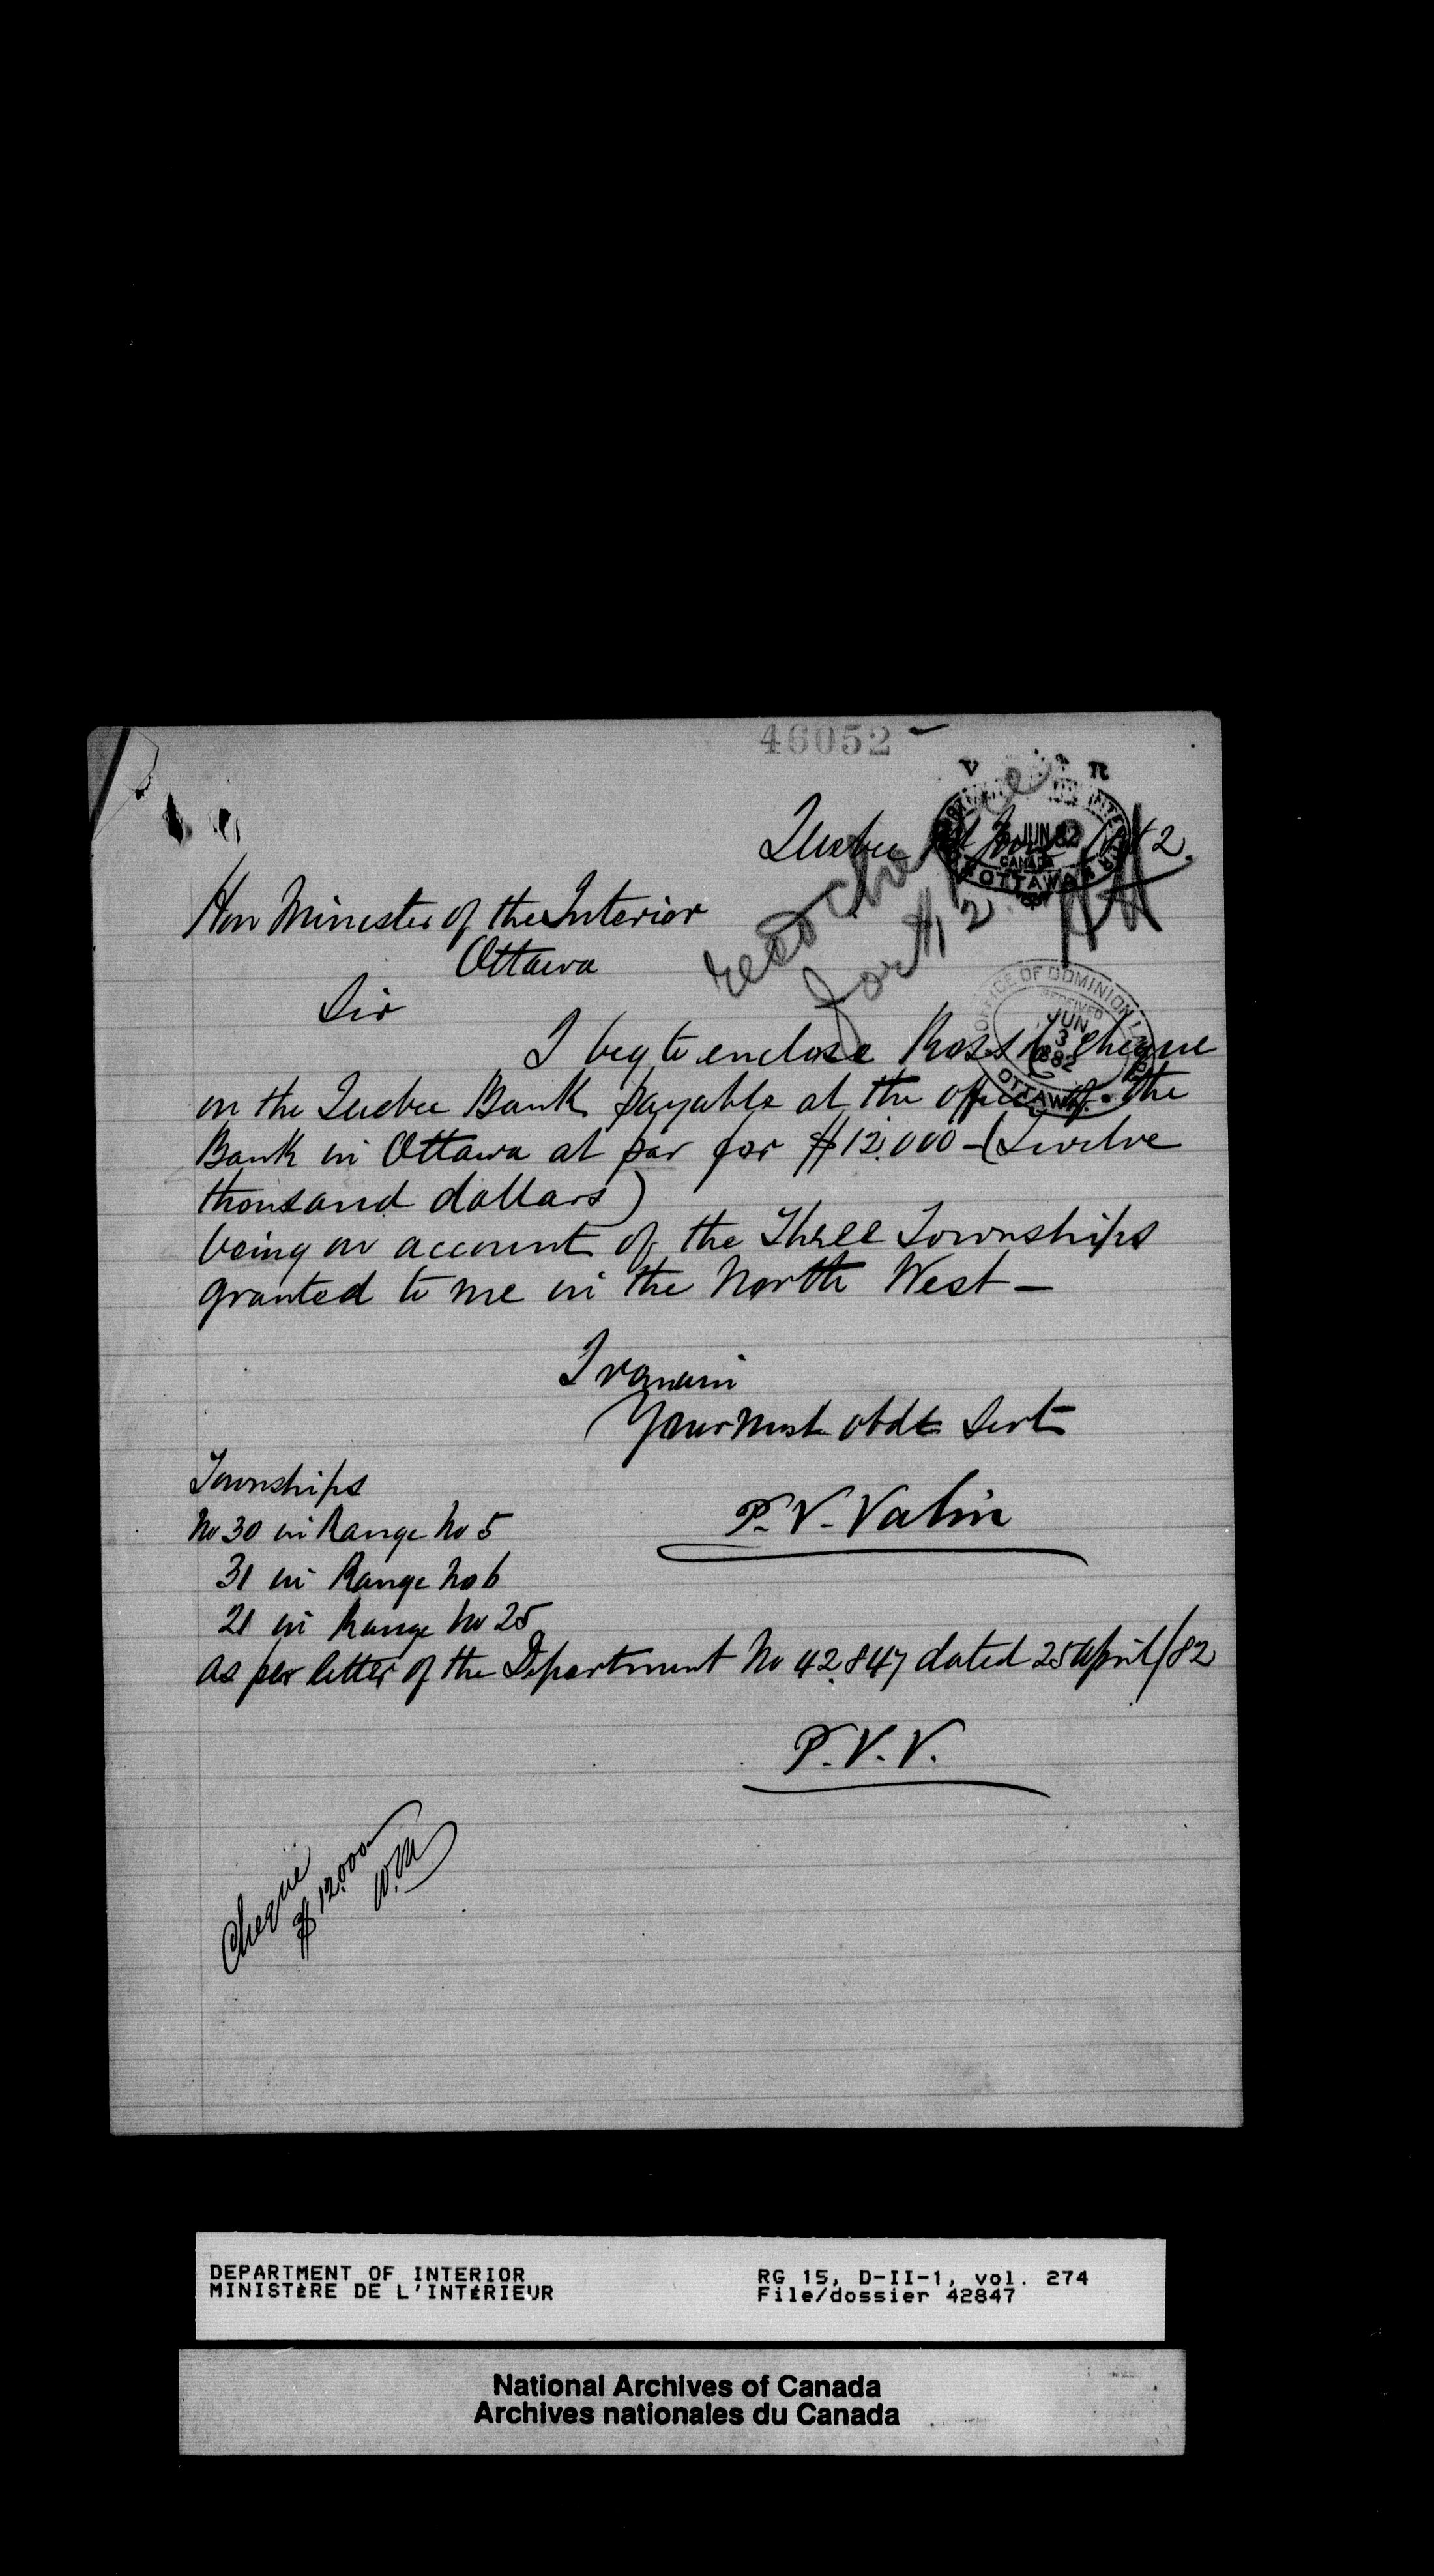 46052
V R
JUN 82
CANADA
OTTAWA
Quebec June 1882.
Hon Minister of the Interior
Ottawa
recd cheque
for $12
OFFICE OF DOMINION
RECEIVED
JUN
3
1882
OTTAWA
Sir
I beg to enclose Ross & Co cheque
on the Quebec Bank payable at the office of the
Bank in Ottawa at par for $12,000 - (Twelve
thousand dollars)
being on account of the Three Townships
granted to me in the North West -
I remain
Your most obdt Servt
P. V. Valin
Townships
No 30 in Range No 5
31 in Range No 6
21 in Range No 25
as per letter of the Department No 42.847 dated 25 April/82
P. V. V.
Cheque
$12,000
W.M
DEPARTMENT OF INTERIOR
MINISTÈRE DE L'INTÉRIEUR
RG 15, D-II-1, vol. 274
File/dossier 42847
National Archives of Canada
Archives nationales du Canada